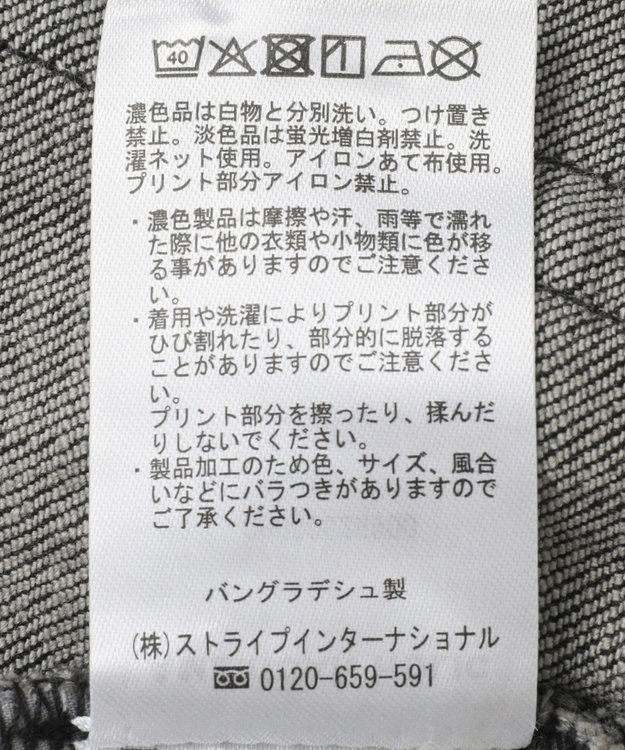 40
濃色品は白物と分別洗い。つけ置き
禁止。淡色品は蛍光増白剤禁止。洗
濯ネット使用。アイロンあて布使用。
プリント部分アイロン禁止。
・濃色製品は摩擦や汗、雨等で濡れ
た際に他の衣類や小物類に色が移
る事がありますのでご注意くださ
い。
・着用や洗濯によりプリント部分が
ひび割れたり、部分的に脱落する
ことがありますのでご注意くださ
い。
プリント部分を擦ったり、揉んだ
りしないでください。
・製品加工のため色、サイズ、風合
いなどにバラつきがありますので
ご了承ください。
バングラデシュ製
(株)ストライプインターナショナル
0120-659-591